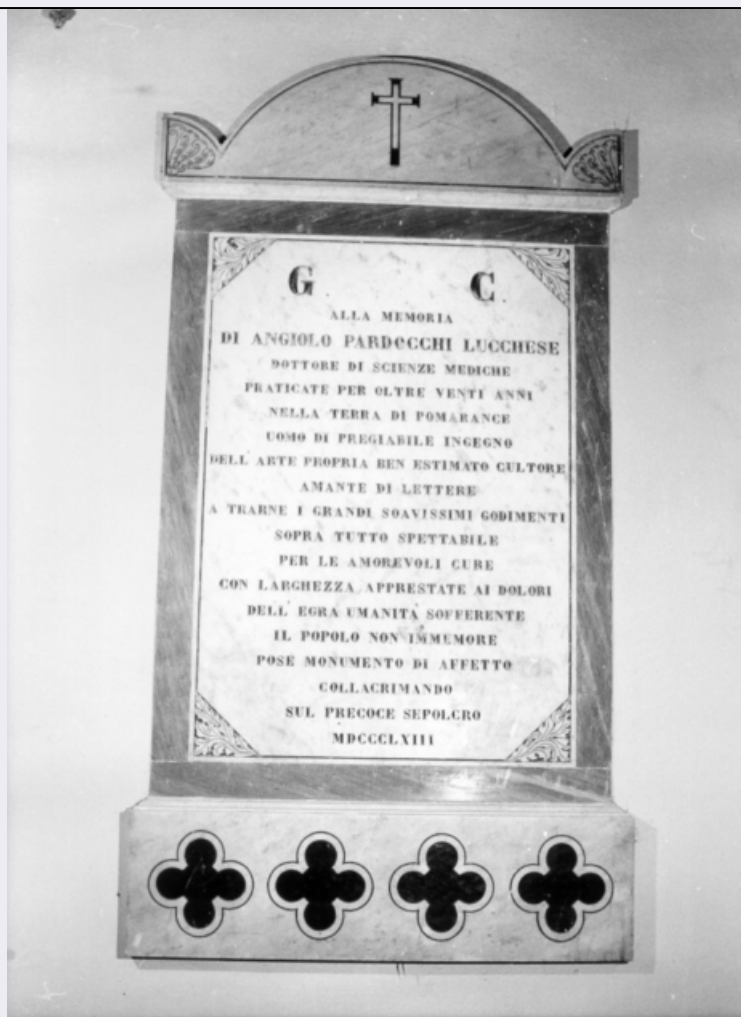 G C
ALLA MEMORIA
DI ANGIOLO PARDOCCHI LUCCHESE
DOTTORE DI SCIENZE MEDICHE
PRATICATE PER OLTRE VENTI ANNI
NELLA TERRA DI POMARANCE
UOMO DI PREGIABILE INGEGNO
DELL ARTE PROPRIA BEN ESTIMATO CULTORE
AMANTE DI LETTERE
A TRARNE I GRANDI SOAVISSIMI GODIMENTI
SOPRA TUTTO SPETTABILE
PER LE AMOREVOLI CURE
CON LARGHEZZA APPRESTATE AI DOLORI
DELL EGRA UMANITÀ SOFFERENTE
IL POPOLO NON IMMEMORE
POSE MONUMENTO DI AFFETTO
COLLACRIMANDO
SUL PRECOCE SEPOLCRO
MDCCCLXIII